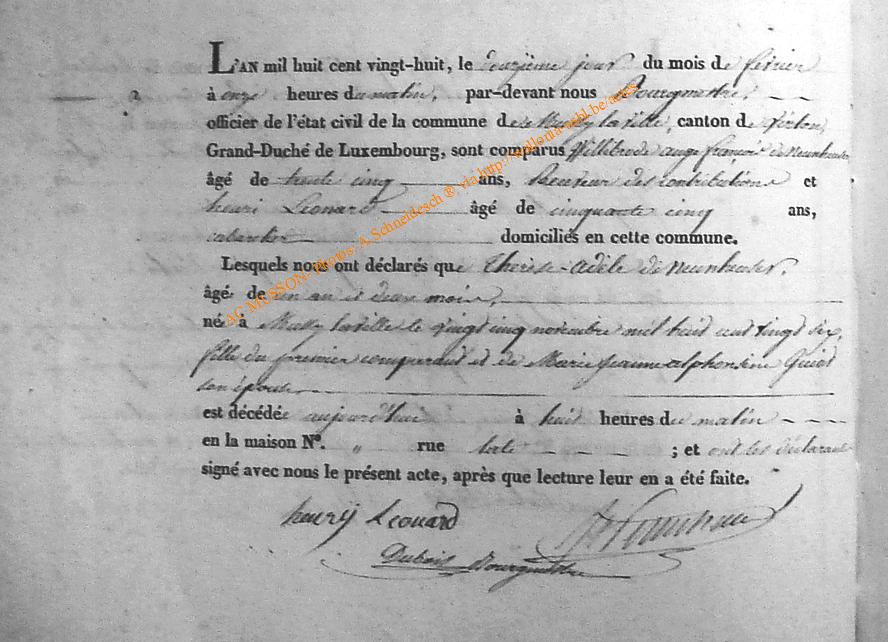 L'AN mil huit cent vingt-huit, le deuxième jour du mois de février
à onze heures du matin, par-devant nous Bourgmestre
officier de l'état civil de la commune de Mussy la ville, canton de Virton
Grand-Duché de Luxembourg, sont comparus ange françois de Neunheuser
âgé de trente cinq ans, Receveur des Contributions et
henri Léonard âgé de cinquante cinq ans,
cabaretier domiciliés en cette commune.
Lesquels nous ont déclarés que Thérèse-adèle de Neunheuser,
âgée de un an et deux mois,
née à Mussy laville le vingt cinq novembre mil huit cent vingt six,
fille du premier comparant et de Marie Jeanne alphonsine
son épouse
est décédée aujourd'hui à huit heures du matin
en la maison N°. „ rue ; et ont les déclarants
signé avec nous le présent acte, après que lecture leur en a été faite.
henrÿ Léonard
Dubois Bourgmestre
AC MUSSON-Photos: A. Schneidesch ® via http://